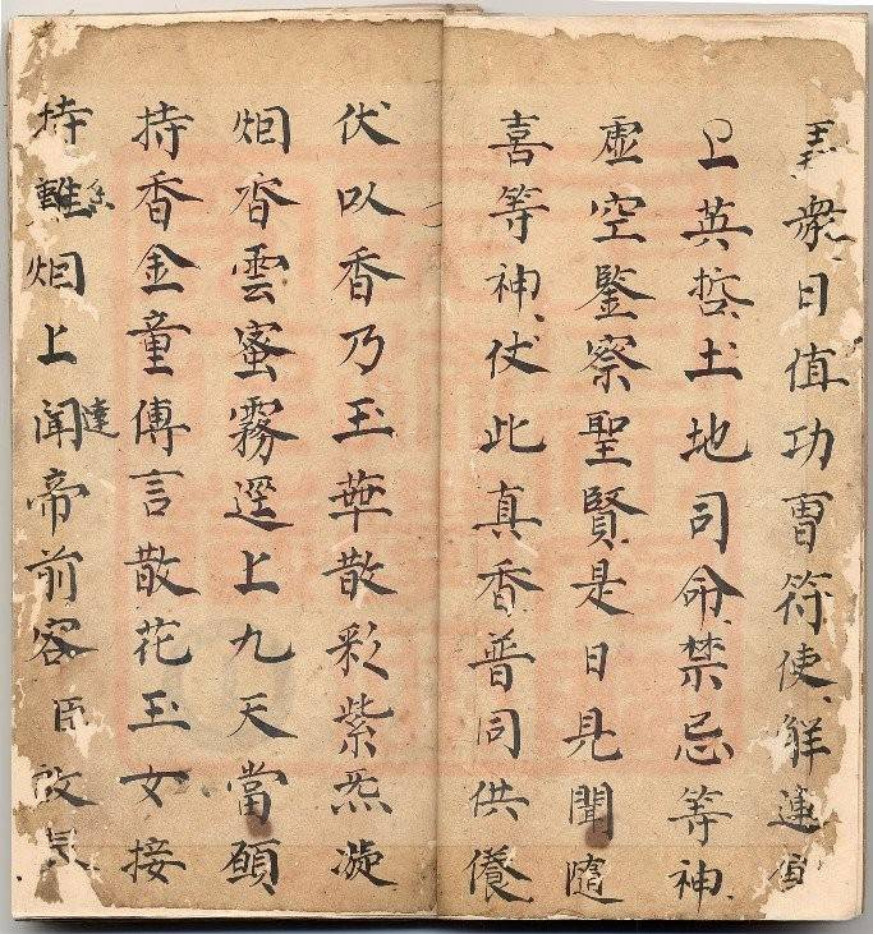 衆日值功曺符使觧運
上英哲土地司命禁忌等神
虛空鍳察聖賢是日見聞隨
喜等神仗此真香普同供養
伏以香乃玉華散彩紫炁凝
烟香雲蜜霧逕上九天當願
持香金童傳言散花玉女接
持離烟上聞達帝前容臣啟